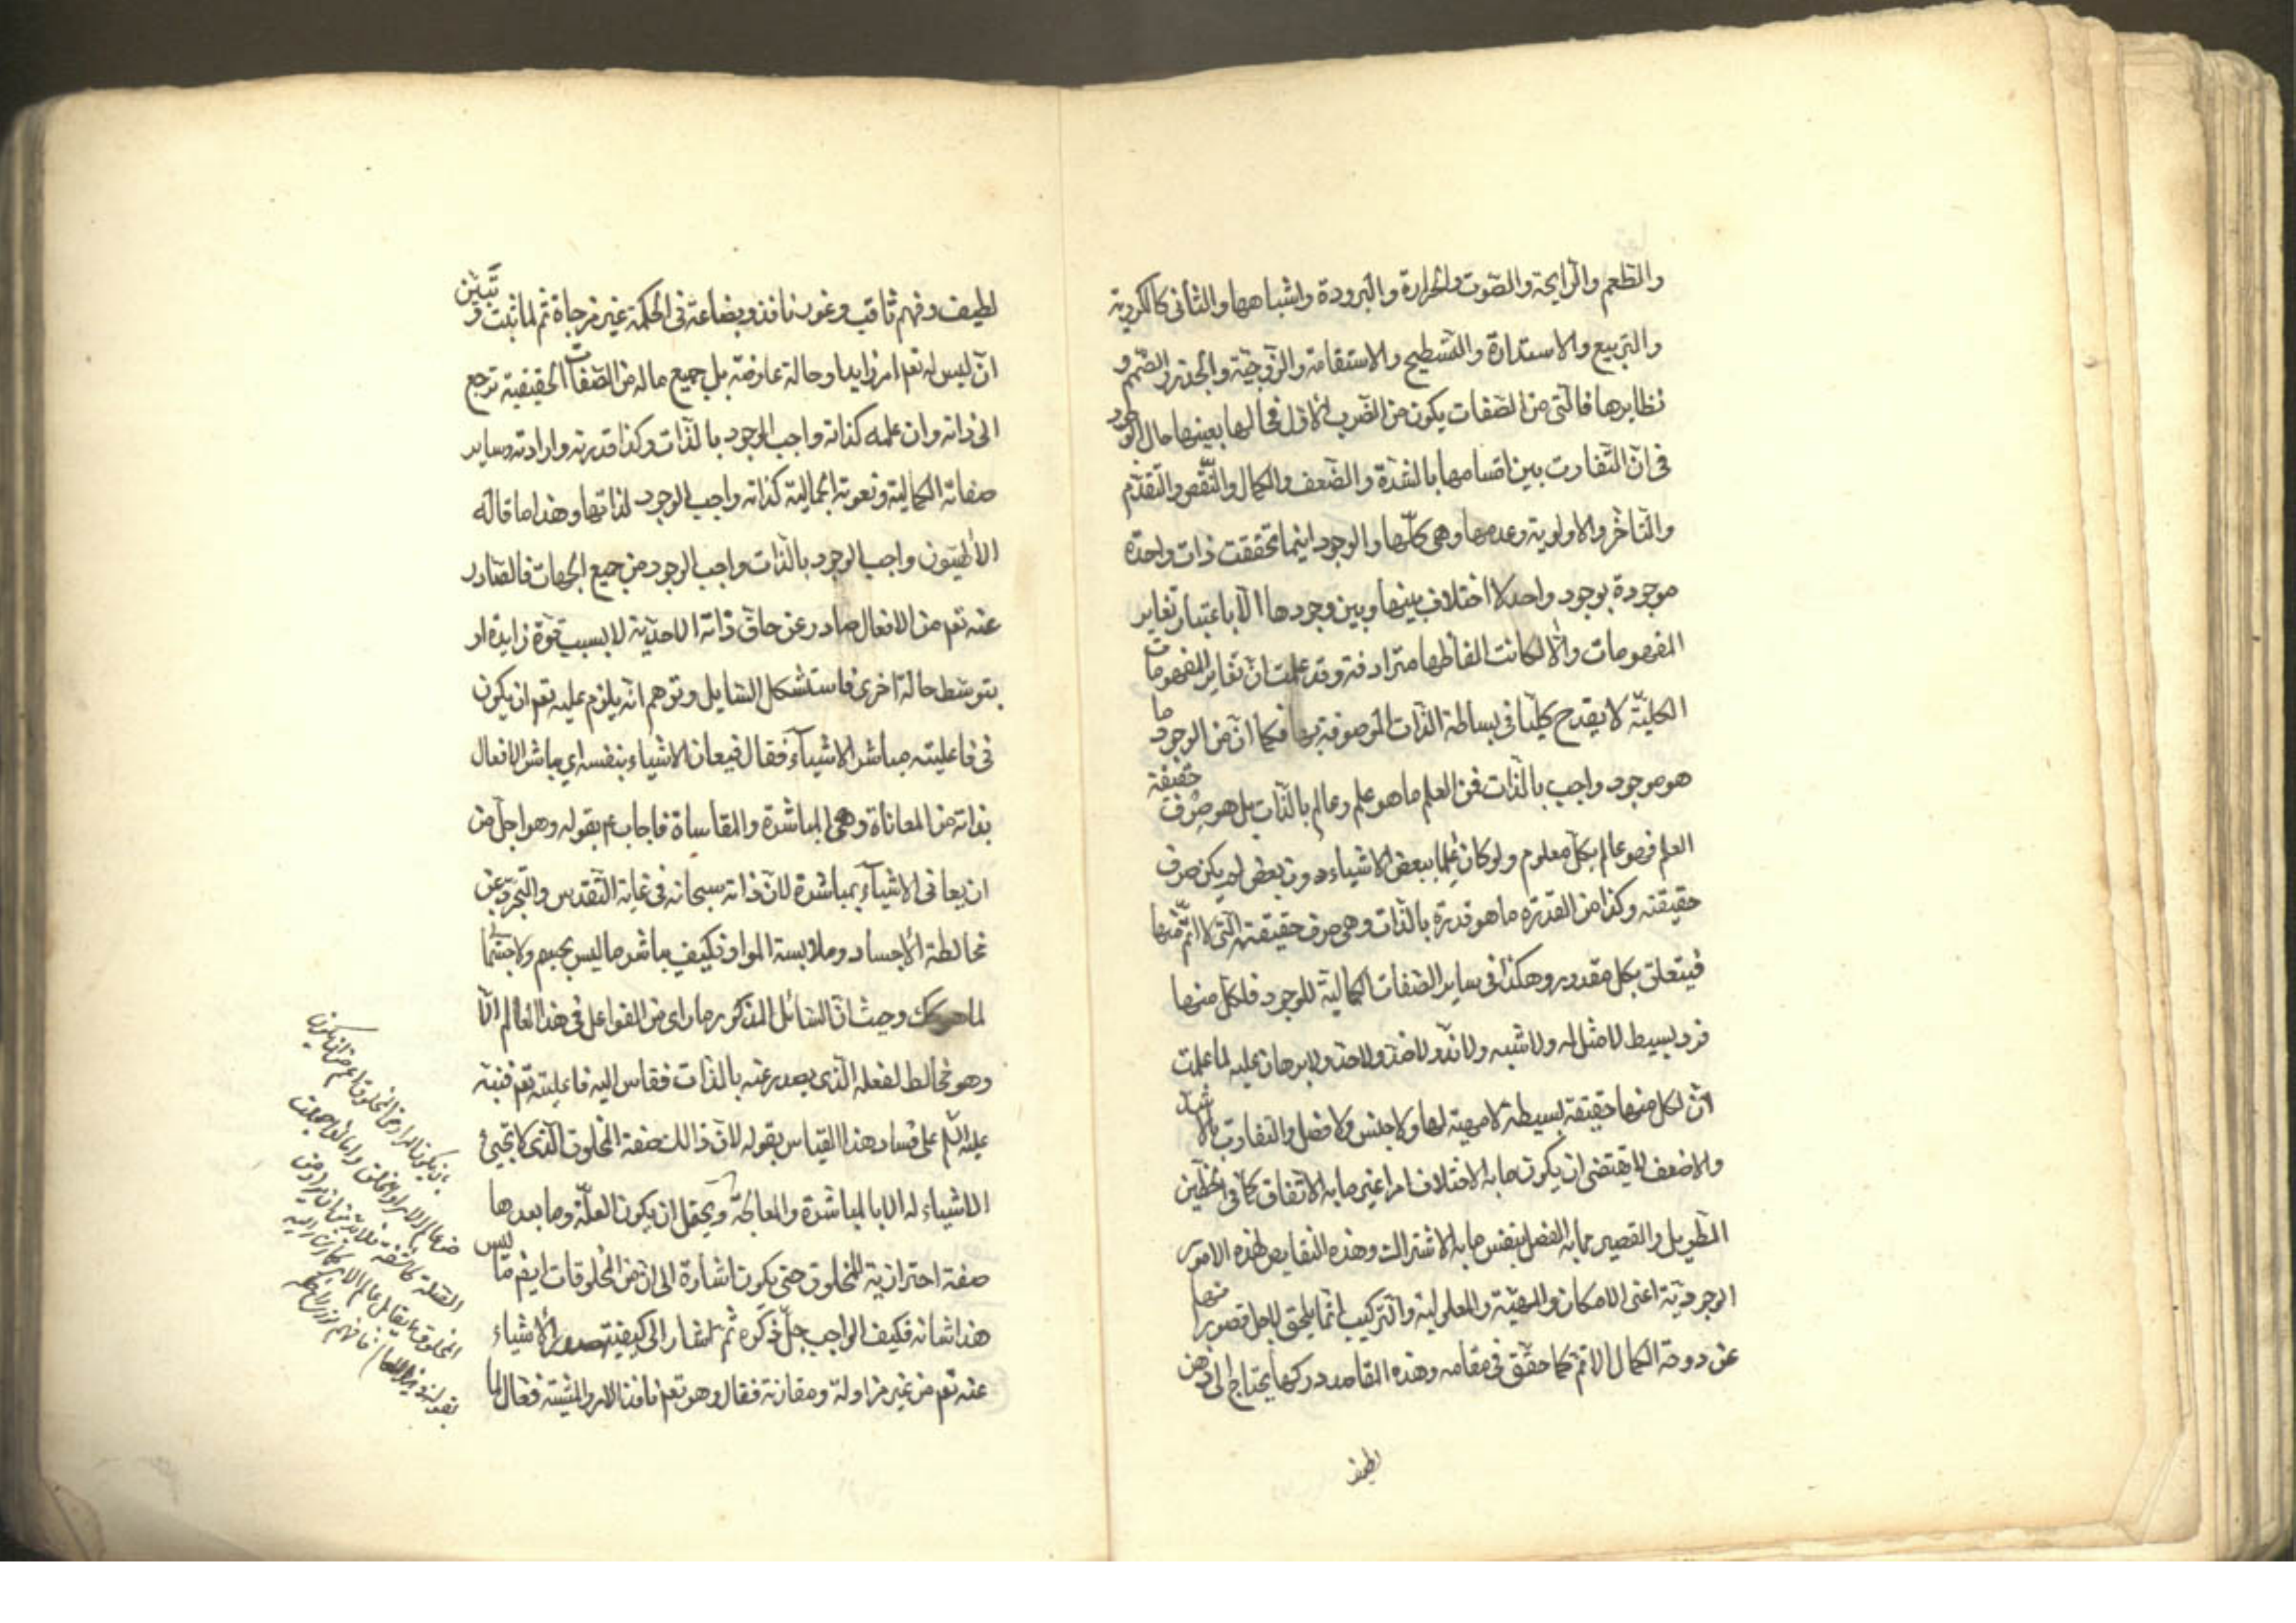 والطعم والرايحة والصوت والحرارة والبرودة واشباهها والثانى كالكروية
والتربيع والاستدارة والتسطيح والاستقامة والزوجية والجذر والصمم و
نظايرها فالتى من الصفات يكون من الضرب الاول فحالها بعينها حال الوجود
فى ان التفاوت بين اقسامها بالشدة والضعف والكمال والنقص والتقدم
والتاخر والاولوية وعدمها وهى كلها والوجود اينما تحققت ذات واحدة
موجودة بوجود واحد لا اختلاف بينها وبين وجودها الا باعتبار تغاير
المفهومات والا لكانت الفاظها مترادفة وقد علمت ان تغاير المفهومات
الكلية لا يقدح كليا فى بساطة الذات الموصوفة بها فكما ان من الوجود ما
هو موجود واجب بالذات فمن العلم ما هو علم وعالم بالذات بل هو صرف حقيقة
العلم فهو عالم بكل معلوم ولو كان علما ببعض الاشياء دون بعض لم يكن صرف
حقيقته وكذا من القدرة ما هو قدرة بالذات وهى صرف حقيقته التى لا اتم منها
فيتعلق بكل مقدور وهكذا فى ساير الصفات الكمالية للوجود فلكل منها
فرد بسيط لا مثل له ولا شبه ولا ند ولا ضد ولا حد ولا برهان عليه لما علمت
ان لكل منها حقيقة بسيطة لا مهية لها ولا جنس ولا فصل والتفاوت بالاشد
والاضعف لا يقتضى ان يكون ما به الاختلاف امرا غير ما به الاتفاق كما فى الخطين
الطويل والقصير مما به الفصل بنفس ما به الاشتراك وهذه النقايص لهذه الامور
الوجودية اعنى الامكان والمهية والمعلولية والتركيب انما يلحق لاجل قصور منها
عن درجة الكمال الاتم كما حقق فى مقامه وهذه المقاصد دركها يحتاج الى ذهن
لطيف
لطيف وفهم ثاقب وغور نافذ وبضاعة فى الحكمة غير مزجاة ثم لما ثبت وتبين
ان ليس له تعم امر زايد او حالة عارضة بل جميع ماله من الصفات الحقيقية ترجع
الى ذاته وان علمه كذاته واجب الوجود بالذات وكذا قدرته وارادته وساير
صفاته الكمالية ونعوته الجمالية كذاته واجب الوجود لذاتها وهذا ما قاله
الالهيون واجب الوجود بالذات واجب الوجود من جميع الجهات فالصادر
عنه تعم من الافعال صادر عن حاق ذاته الاحدية لا بسبب قوة زايدة او
بتوسط حالة اخرى فاستشكل السايل وتوهم انه يلزم عليه تعم ان يكون
فى فاعليته مباشر الاشياء فقال فيعانى الاشياء بنفسه اى يباشر الافعال
بذاته من المعاناة وهى المباشرة والمقاساة فاجاب ع بقوله وهو اجل من
ان يعانى الاشياء بمباشرة لان ذاته سبحانه فى غاية التقدس والتجرد عن
مخالطة الاجساد وملابسة المواد فكيف يباشر ما ليس بجسم ولا جسمانى
وحيث ان السائل المذكور ما راى من الفواعل فى هذا العالم الا
وهو مخالط لفعله الذى يصدر عنه بالذات فقاس اليه فاعليته تعم فنبه
عليه السلم على فساد هذا القياس بقوله لان ذالك صفة المخلوق الذى لا يجيئ
الاشياء له الا بالمباشرة والمعالجة ويحتمل ان يكون العلة وما بعدها
صفة احترازية للمخلوق حتى يكون اشارة الى ان من المخلوقات ايضا ما ليس
هذا شانه فكيف الواجب جل ذكره ثم اشار الى كيفية صدور الاشياء
عنه تعم من غير مزاولة ومقارنة فقال وهو تعم نافذ الامر والمشية فعال لما
بان يكون المراد من المخلوق اعم من ان يكون
من عالم الامر او الخلق واما اذا جعلت
الصفة كاشفة فلا بد بان يراد من
المخلوق ما يقابل عالم الامر كما اشار اليه